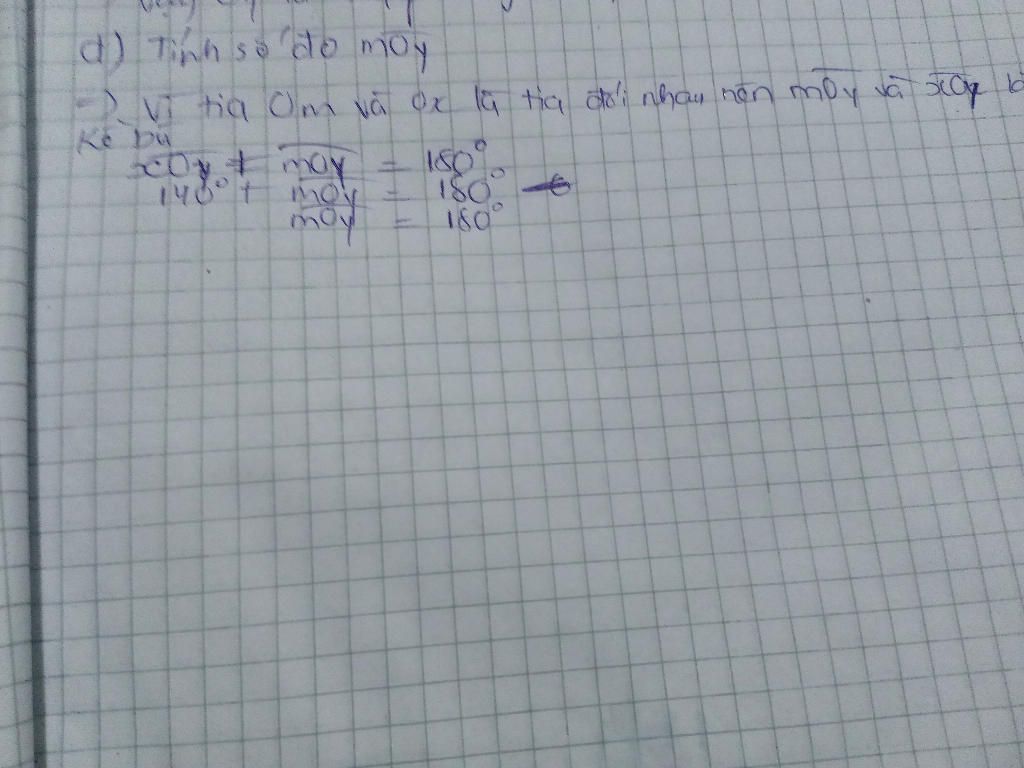 d) Tính số đo mOy
=> Vì tia Om và Ox là tia đối nhau nên mOy và xOy
kề bù
xOy + mOy = 180°
140° + mOy = 180°
mOy = 180°